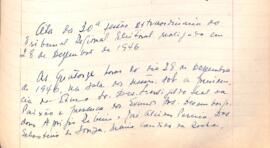 Ata da 30ª sessão extraordinária do
Tribunal Regional Eleitoral realizada em
28 de Dezembro de 1946.
As quatorze horas do dia 28 de Dezembro
de 1946, na sala das sessões, sob a presidên
cia do Exmo. Sr. Des. Leal da
Paixão e presença dos Exmos. Srs.
dores
Sebastião de Souza, da Rocha,